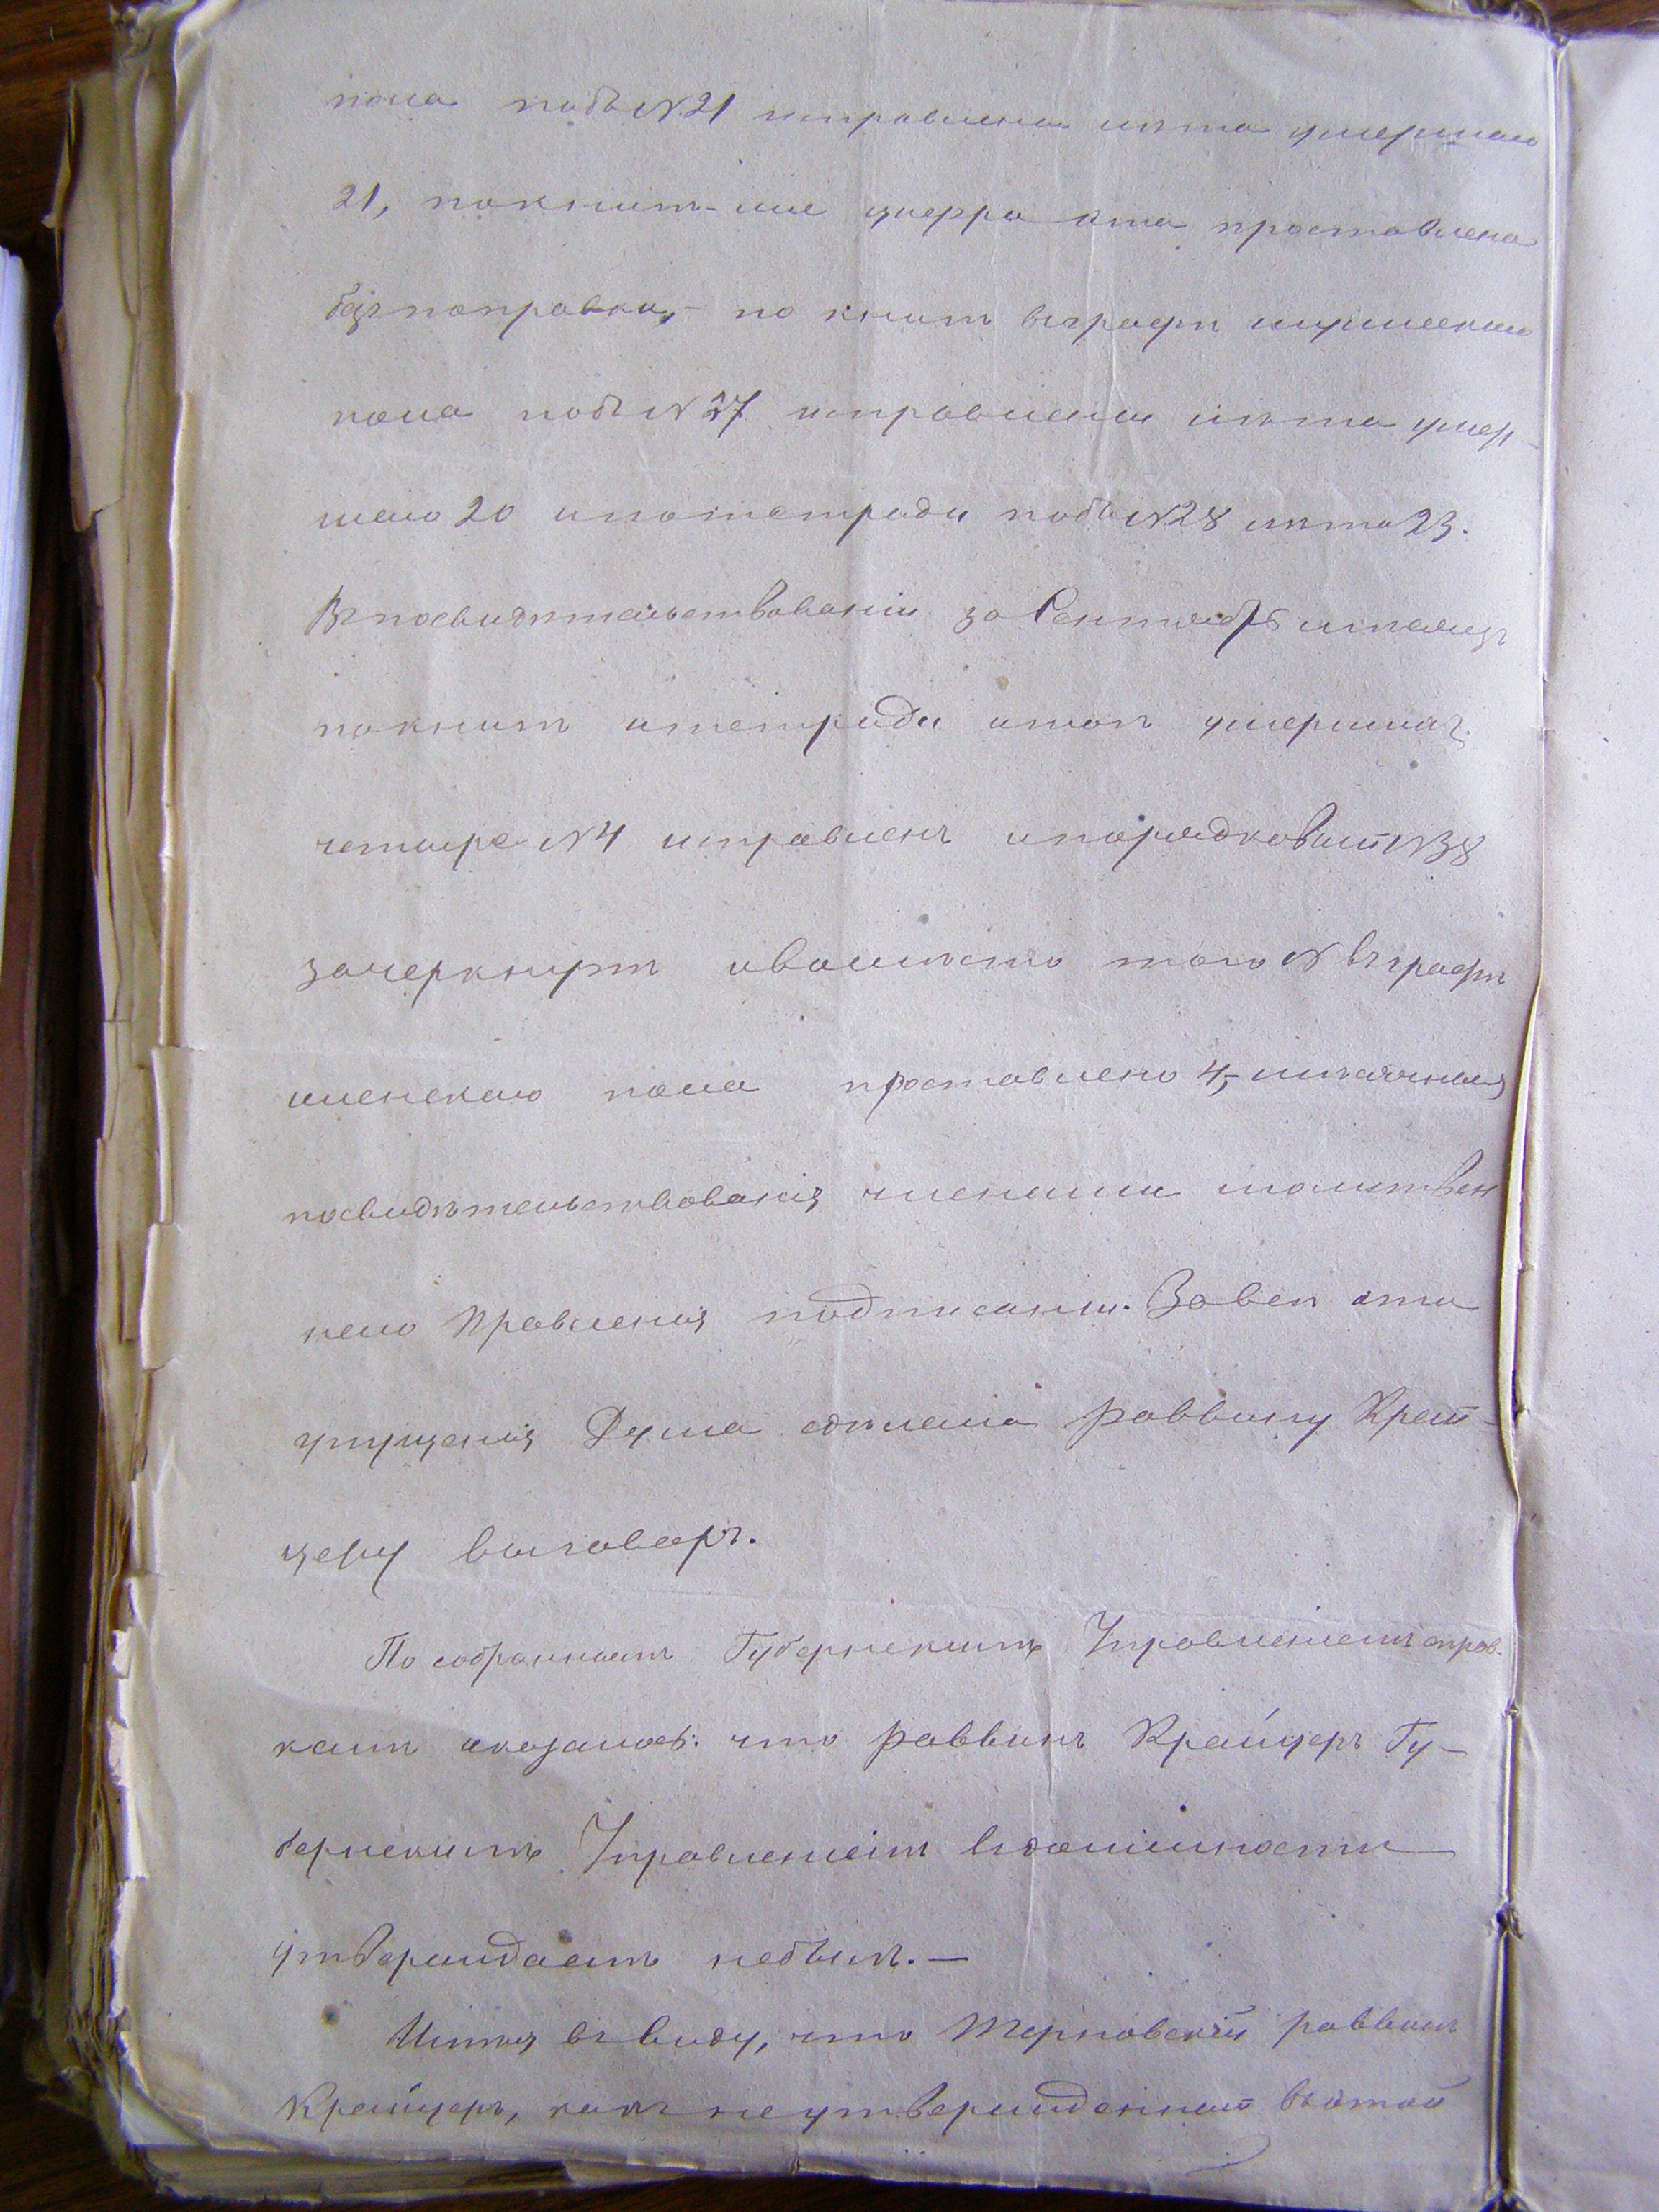 пола подъ №21 исправлена лѣта умершаго
21, по книгѣ-же цифра эта проставлена
безъ поправки,- по книгѣ въ графѣ мужескаго
пола подъ №27 исправлены лѣта умер-
шаго 20 и по тетради подъ №28 лѣта 23.
Въ посвидѣтельствованіи за Сентябрь мѣсяцъ
по книгѣ и тетради итогъ умершихъ
четыре №4 исправленъ и порядковый №38
зачеркнутъ и вмѣсто того № въ графѣ
женскаго пола проставлено 4,- мѣсячныя
посвидѣтельствованія членами молитвен
наго Правленія подписаны. За всѣ эти
упущенія Дума сдѣлала раввину Край-
церу выговоръ.
По собраннымъ Губернскимъ Правленіемъ справ-
камъ оказалось: что раввинъ Крайцеръ Гу-
бернскимъ Правленіемъ въ должности
утверждаемъ небылъ.—
Имѣя въ виду, что Терновскій раввинъ
Крайцеръ, какъ неутвержденный въ этой